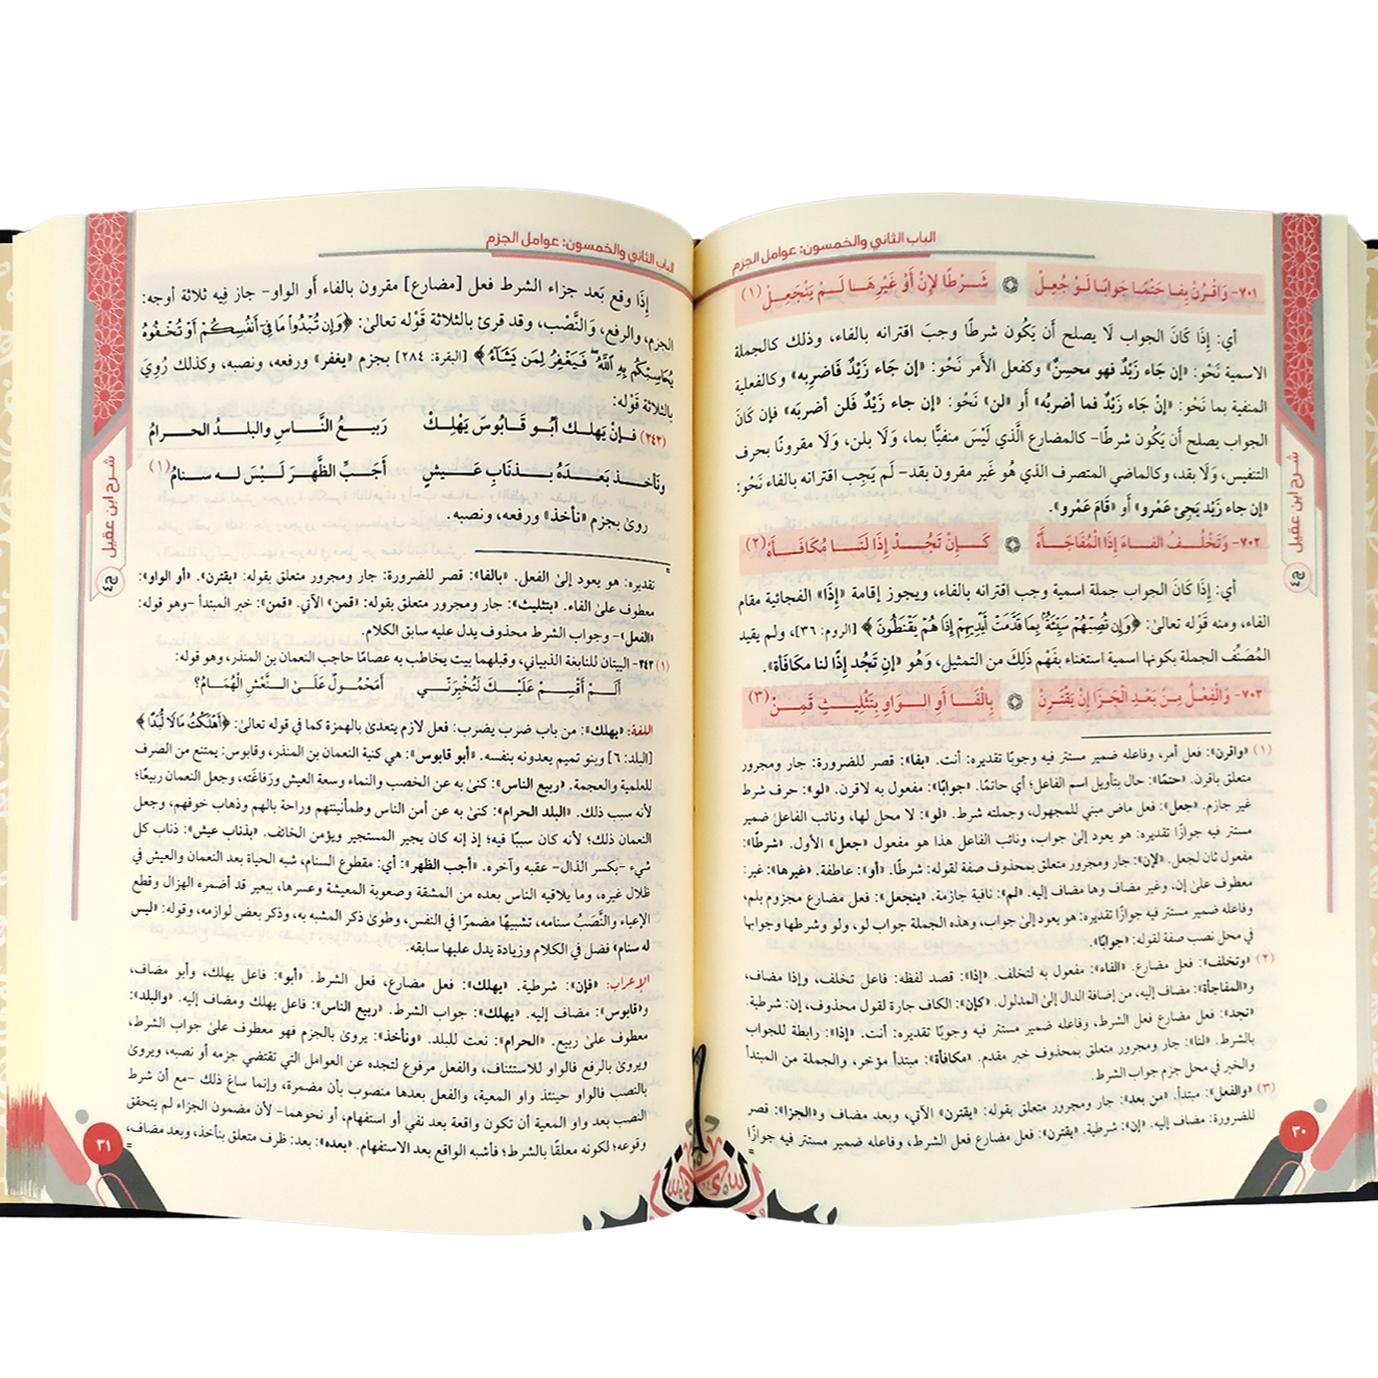 الباب الثاني والخمسون: عوامل الجزم
٧٠١- وَاقْرُنْ بِفَا حَتْمًا جَوَابًا لَوْ جُعِلْ شَرْطًا لِإِنْ أَوْ غَيْرِهَا لَمْ يَنْجَعِلْ (١)
أي: إِذَا كَانَ الجواب لَا يصلح أَن يَكُون شرطًا وجبَ اقترانه بالفاء، وذلك كالجملة
الاسمية نَحْو: «إن جَاء زَيْدٌ فهو محسنٌ» وكفعل الأمر نَحْو: «إن جَاء زَيْدٌ فَاضربه» وكالفعلية
المنفية بما نَحْو: «إنْ جَاء زَيْدٌ فما أضربُه» أَو «لن» نَحْو: «إن جاء زَيْدٌ فَلن أضربَه» فإن كَانَ
الجواب يصلح أَن يَكُون شرطًا- كالمضارع الَّذي لَيْسَ منفيًّا بما، وَلَا بلن، وَلَا مقرونًا بحرف
التنفيس، وَلَا بقد، وكالماضي المتصرف الذي هُو غَير مقرون بقد- لَم يَجِب اقترانه بالفاء نَحْو:
«إن جاء زَيْد يَجِئ عَمْرو» أو «قَامَ عَمْرو».
٧٠٢- وَتَخْلُفُ الفَاءَ إِذَا الْمُفَاجَأَهْ كَـإِنْ تَجُدْ إِذًا لَنَا مُكَافَأَهْ (٢)
أي: إِذَا كَانَ الجواب جملة اسمية وجب اقترانه بالفاء، ويجوز إقامة «إِذَا» الفجائية مقام
الفاء، ومنه قَوْله تعالىٰ: ﴿وَإِن تُصِبْهُمْ سَيِّئَةٌ بِمَا قَدَّمَتْ أَيْدِيهِمْ إِذَا هُمْ يَقْنَطُونَ﴾ [الروم: ٣٦]، ولم يقيد
المُصَنِّف الجملة بكونها اسمية استغناء بفَهْم ذَلِكَ من التمثيل، وَهُو «إن تَجُد إذًا لنا مكافأة».
٧٠٣- وَالْفِعْلُ مِنْ بَعْدِ الْجَزَا إِنْ يَقْتَرِنْ بِالْفَا أَوِ الْوَاوِ بِتَثْلِيثٍ قَمِنْ (٣)
(١) «واقرن»: فعل أمر، وفاعله ضمير مستتر فيه وجوبًا تقديره: أنت. «بفا»: قصر للضرورة: جار ومجرور
متعلق باقرن. «حتمًا»: حال بتأويل اسم الفاعل؛ أي حاتمًا. «جوابًا»: مفعول به لاقرن. «لو»: حرف شرط
غير جازم. «جعل»: فعل ماض مبني للمجهول، وجملته شرط. «لو»: لا محل لها، ونائب الفاعل ضمير
مستتر فيه جوازًا تقديره: هو يعود إلىٰ جواب، ونائب الفاعل هذا هو مفعول «جعل» الأول. «شرطًا»:
مفعول ثان لجعل. «لإن»: جار ومجرور متعلق بمحذوف صفة لقوله: شرطًا. «أو»: عاطفة. «غيرها»: غير:
معطوف علىٰ إن، وغير مضاف وها مضاف إليه. «لم»: نافية جازمة. «ينجعل»: فعل مضارع مجزوم بلم،
وفاعله ضمير مستتر فيه جوازًا تقديره: هو يعود إلىٰ جواب، وهذه الجملة جواب لو، ولو وشرطها وجوابها
في محل نصب صفة لقوله: «جوابًا».
(٢) «وتخلف»: فعل مضارع. «الفاء»: مفعول به لتخلف. «إذا»: قصد لفظه: فاعل تخلف، وإذا مضاف،
و«المفاجأة»: مضاف إليه، من إضافة الدال إلىٰ المدلول. «كإن»: الكاف جارة لقول محذوف، إن: شرطية.
«تجد»: فعل مضارع فعل الشرط، وفاعله ضمير مستتر فيه وجوبًا تقديره: أنت. «إذا»: رابطة للجواب
بالشرط. «لنا»: جار ومجرور متعلق بمحذوف خبر مقدم. «مكافأة»: مبتدأ مؤخر، والجملة من المبتدأ
والخبر في محل جزم جواب الشرط.
(٣) «والفعل»: مبتدأ. «من بعد»: جار ومجرور متعلق بقوله: «يقترن» الآتي، وبعد مضاف و«الجزا»: قصر
للضرورة: مضاف إليه. «إن»: شرطية. «يقترن»: فعل مضارع فعل الشرط، وفاعله ضمير مستتر فيه جوازًا
=
شرح ابن عقيل
ج٤
٣٠
الباب الثاني والخمسون: عوامل الجزم
إِذَا وقع بَعد جزاء الشرط فعل [مضارع] مقرون بالفاء أَو الواو- جاز فيه ثلاثة أوجه:
الجزم، والرفع، وَالنَّصْب، وقد قرئ بالثلاثة قَوْله تعالىٰ: ﴿وَإِن تُبْدُوا مَا فِي أَنفُسِكُمْ أَوْ تُخْفُوهُ
يُحَاسِبْكُم بِهِ اللَّهُ ۖ فَيَغْفِرُ لِمَن يَشَاءُ﴾ [البقرة: ٢٨٤] بجزم «يغفر» ورفعه، ونصبه، وكذلك رُوِيَ
بالثلاثة قَوْله:
(٣٤٣) فـإِنْ يَهلِك أَبُو قَابُوسَ يَهْلِكْ رَبِيعُ النَّاسِ والبلدُ الحرامُ
ونَأخذ بَعدَهُ بـذنَابِ عَـيشٍ أَجَبِّ الظَّهرَ لَيْسَ له سنامُ (١)
روىٰ بجزم «نأخذ» ورفعه، ونصبه.
تقديره: هو يعود إلىٰ الفعل. «بالفا»: قصر للضرورة: جار ومجرور متعلق بقوله: «يقترن». «أو الواو»:
معطوف علىٰ الفاء. «بتثليث»: جار ومجرور متعلق بقوله: «قمن» الآتي. «قمن»: خبر المبتدأ -وهو قوله:
«الفعل»- وجواب الشرط محذوف يدل عليه سابق الكلام.
(١) ٣٤٣- البيتان للنابغة الذبياني، وقبلهما بيت يخاطب به عصامًا حاجب النعمان بن المنذر، وهو قوله:
أَلَـمْ أُقْسِمْ عَلَيْكَ لَتُخْبِرَنِّي أَمَحْمُولٌ عَلَىٰ النَّعْشِ الْهُمَامُ؟
اللغة: «يهلك»: من باب ضرب يضرب: فعل لازم يتعدىٰ بالهمزة كما في قوله تعالىٰ: ﴿أَهْلَكْتُ مَالًا لُّبَدًا﴾
[البلد: ٦] وبنو تميم يعدونه بنفسه. «أبو قابوس»: هي كنية النعمان بن المنذر، وقابوس: يمتنع من الصرف
للعلمية والعجمة. «ربيع الناس»: كنىٰ به عن الخصب والنماء وسعة العيش ورَفاغَته، وجعل النعمان ربيعًا؛
لأنه سبب ذلك. «البلد الحرام»: كنىٰ به عن أمن الناس وطمأنينتهم وراحة بالهم وذهاب خوفهم، وجعل
النعمان ذلك؛ لأنه كان سببًا فيه؛ إذ إنه كان يجير المستجير ويؤمن الخائف. «بذناب عيش»: ذناب كل
شيء -بكسر الذال- عقبه وآخره. «أجب الظهر»: أي: مقطوع السنام، شبه الحياة بعد النعمان والعيش في
ظلال غيره، وما يلاقيه الناس بعده من المشقة وصعوبة المعيشة وعسرها، ببعير قد أضمره الهزال وقطع
الإعياء والنَّصَبُ سنامه، تشبيهًا مضمرًا في النفس، وطوىٰ ذكر المشبه به، وذكر بعض لوازمه، وقوله: «ليس
له سنام» فضل في الكلام وزيادة يدل عليها سابقه.
الإعراب: «فإن»: شرطية. «يهلك»: فعل مضارع، فعل الشرط. «أبو»: فاعل يهلك، وأبو مضاف،
و«قابوس»: مضاف إليه. «يهلك»: جواب الشرط. «ربيع الناس»: فاعل يهلك ومضاف إليه. «والبلد»:
معطوف علىٰ ربيع. «الحرام»: نعت للبلد. «ونأخذ»: يروىٰ بالجزم فهو معطوف علىٰ جواب الشرط،
ويروىٰ بالرفع فالواو للاستئناف، والفعل مرفوع لتجده عن العوامل التي تقتضي جزمه أو نصبه، ويروىٰ
بالنصب فالواو حينئذ واو المعية، والفعل بعدها منصوب بأن مضمرة، وإنما ساغ ذلك -مع أن شرط
النصب بعد واو المعية أن تكون واقعة بعد نفي أو استفهام، أو نحوهما- لأن مضمون الجزاء لم يتحقق
وقوعه؛ لكونه معلقًا بالشرط؛ فأشبه الواقع بعد الاستفهام. «بعده»: بعد: ظرف متعلق بنأخذ، وبعد مضاف،
=
شرح ابن عقيل
ج٤
٣١